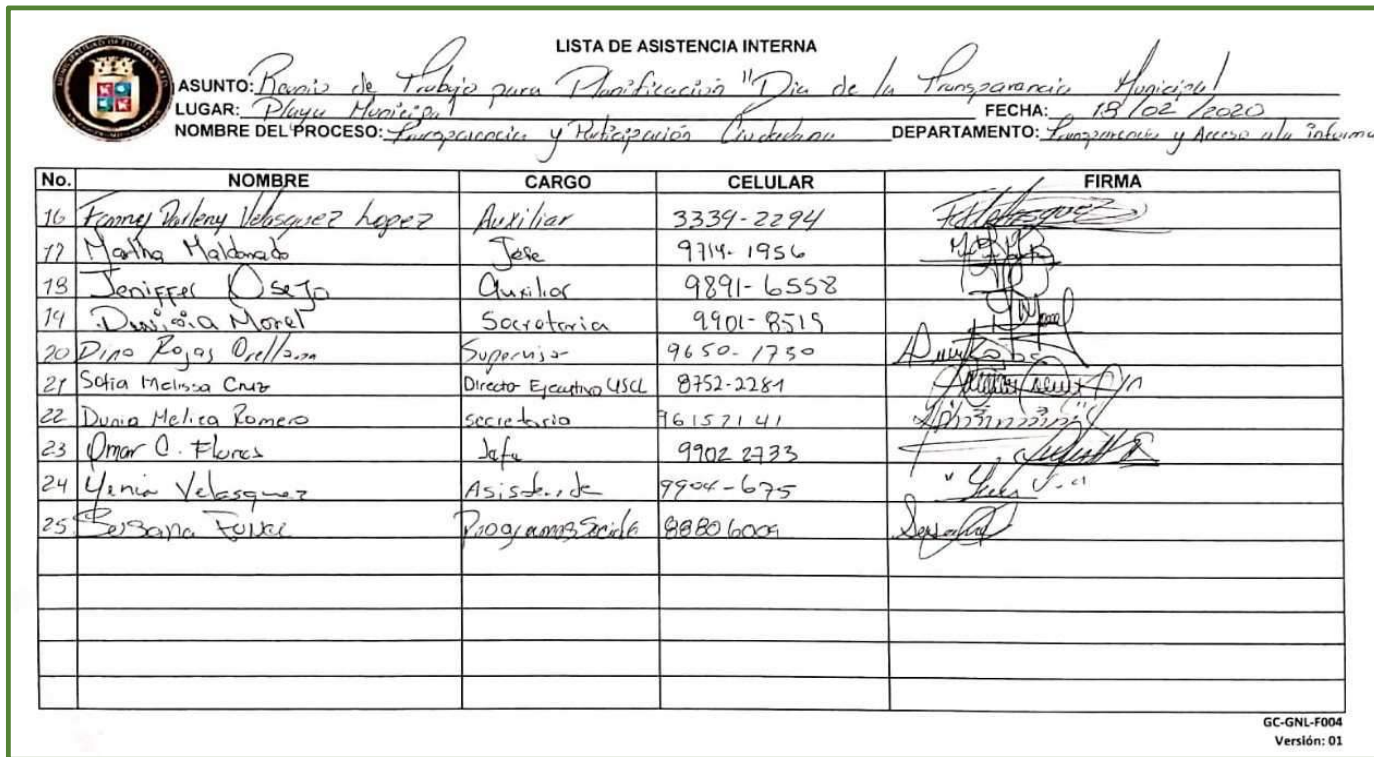 LISTA DE ASISTENCIA INTERNA
ASUNTO: Reunio de Trabajo para Planificación "Dia de la Transparencia Municipal
LUGAR: Playa Municipal FECHA: 18/02/2020
NOMBRE DEL PROCESO: Transparencia y Participación Ciudadana DEPARTAMENTO: Transparencia y Acceso a la informa
No. NOMBRE CARGO CELULAR FIRMA
16 Fanny Darleny Velasquez Lopez Auxiliar 3339-2294
17 Martha Maldonado Jefe 9714-1956
18 Jeniffer Osejo Auxiliar 9891-6558
19 Morel Secretaria 9901-8519
20 Dino Rojas Orellana Supervisor 9650-1730
21 Sofia Melissa Cruz Director Ejecutivo USCL 8752-2281
22 Dunia Melica Romero secretaria 96157141
23 Omar C. Flores Jefe 9902 2733
24 Yenia Velasquez Asistente 9904-675
25 Programas Sociale 88806009
GC-GNL-F004
Versión: 01